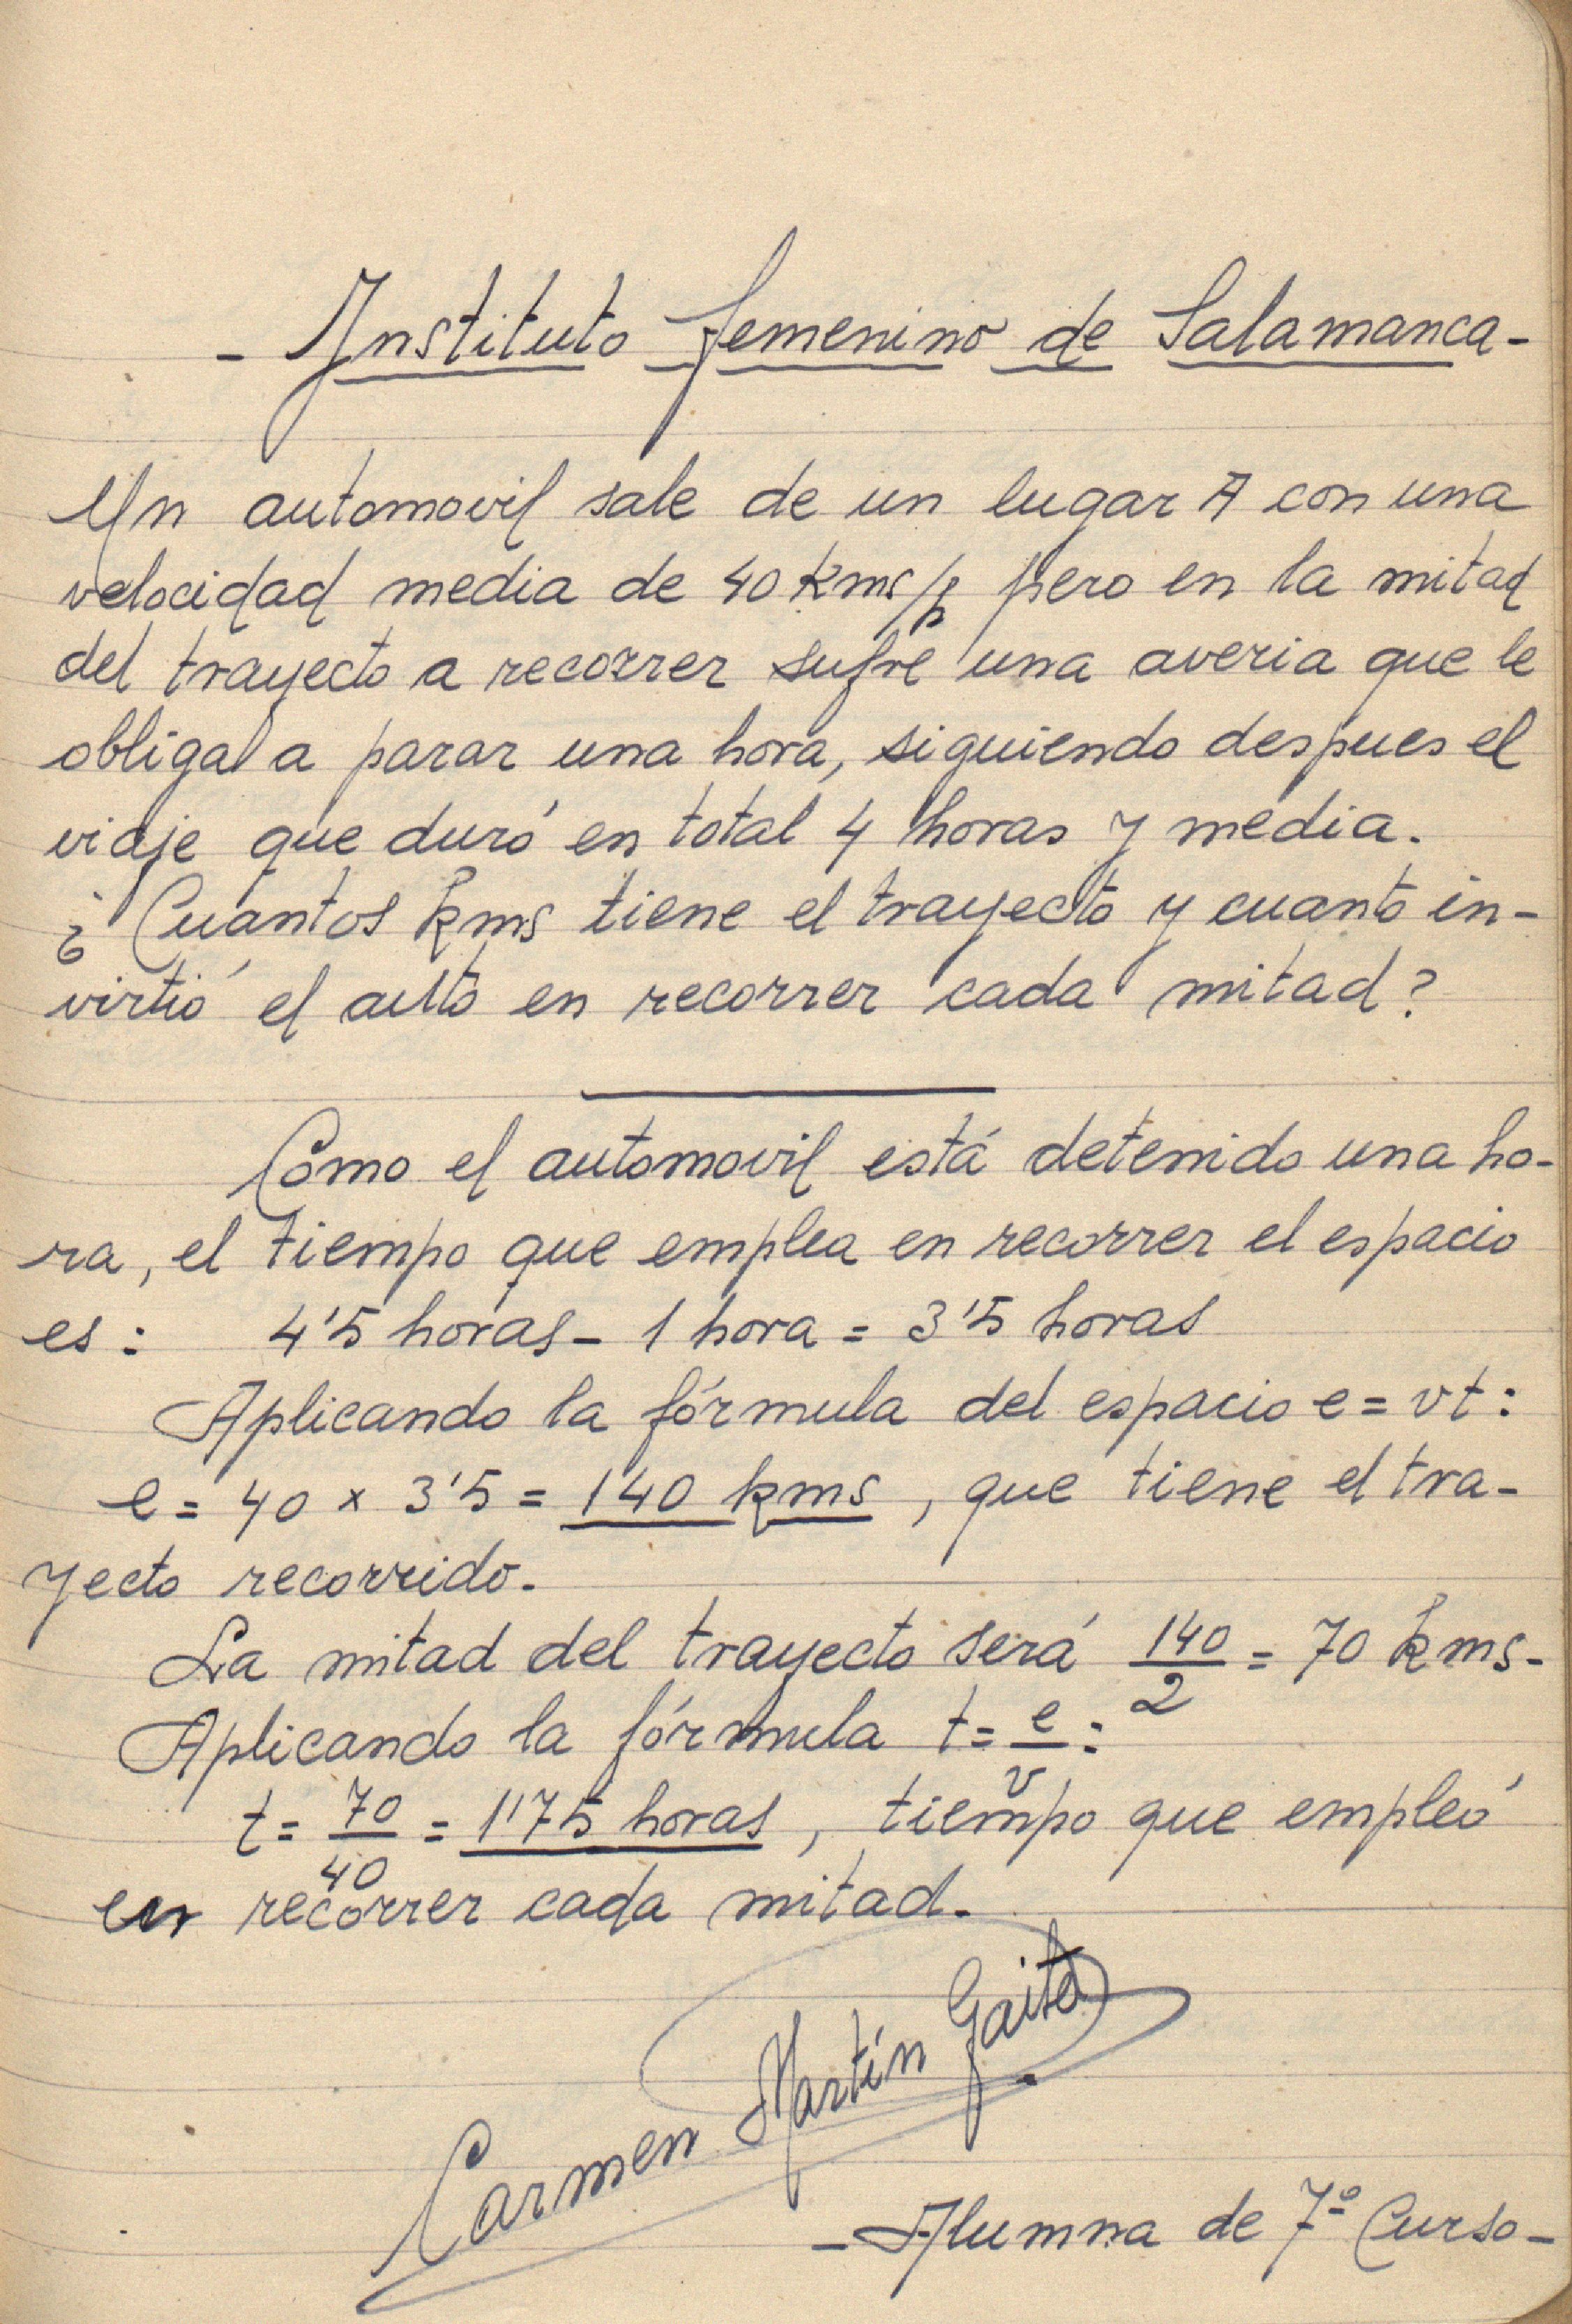 - Instituto femenino de Salamanca -
Un automovil sale de un lugar A con una
velocidad media de 40 kms/h pero en la mitad
del trayecto a recorrer sufre una averia que le
obliga a parar una hora, siguiendo despues el
viaje que duró en total 4 horas y media.
¿Cuantos kms tiene el trayecto y cuanto in-
virtió el auto en recorrer cada mitad?
Como el automovil está detenido una ho-
ra, el tiempo que emplea en recorrer el espacio
es: 4'5 horas - 1 hora = 3'5 horas
Aplicando la fórmula del espacio e = vt:
e = 40 x 3'5 = 140 kms, que tiene el tra-
yecto recorrido.
La mitad del trayecto será 140/2 = 70 kms-
Aplicando la fórmula t = e/v:
t = 70/40 = 1'75 horas, tiempo que empleó
en recorrer cada mitad.
Carmen Martín Gaite
- Alumna de 7º Curso -